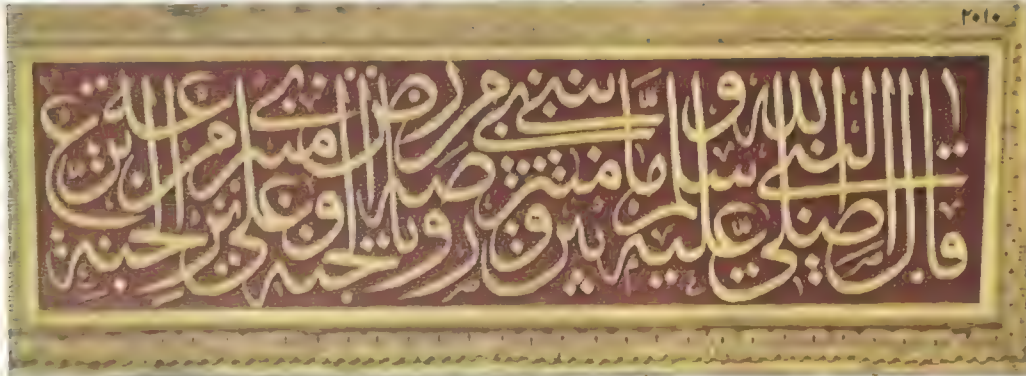 ٢٠١٠
قال النبي صلى الله عليه وسلم ما بين بيتي ومنبري روضة من رياض الجنة ومنبري على ترعة من ترع الجنة